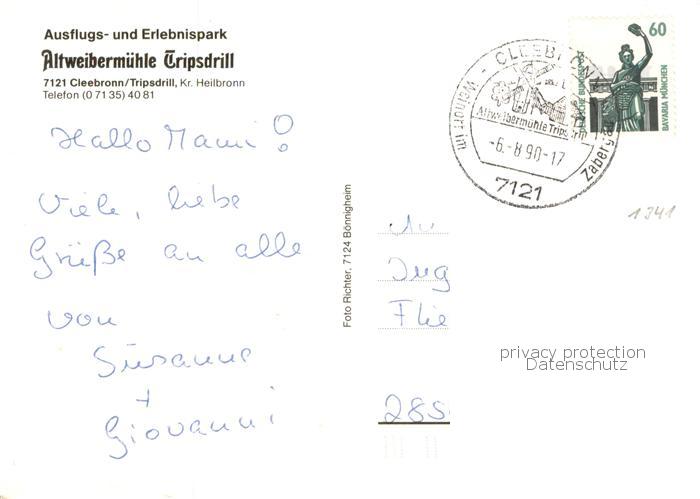 Ausflugs- und Erlebnispark
Altweibermühle Tripsdrill
7121 Cleebronn/Tripsdrill, Kr. Heilbronn
Telefon (0 71 35) 40 81
Hallo Mami!
Viele, liebe
Grüße an alle
von
Susanne
+
Giovanni
Foto Richter, 7124 Bönnigheim
CLEEBRONN
Weinort im
Zabergäu
Altweibermühle Tripsdrill
-6.-8.90-17
7121
60
DEUTSCHE BUNDESPOST
BAVARIA MÜNCHEN
1941
An
Ing
Flie
285
privacy protection
Datenschutz